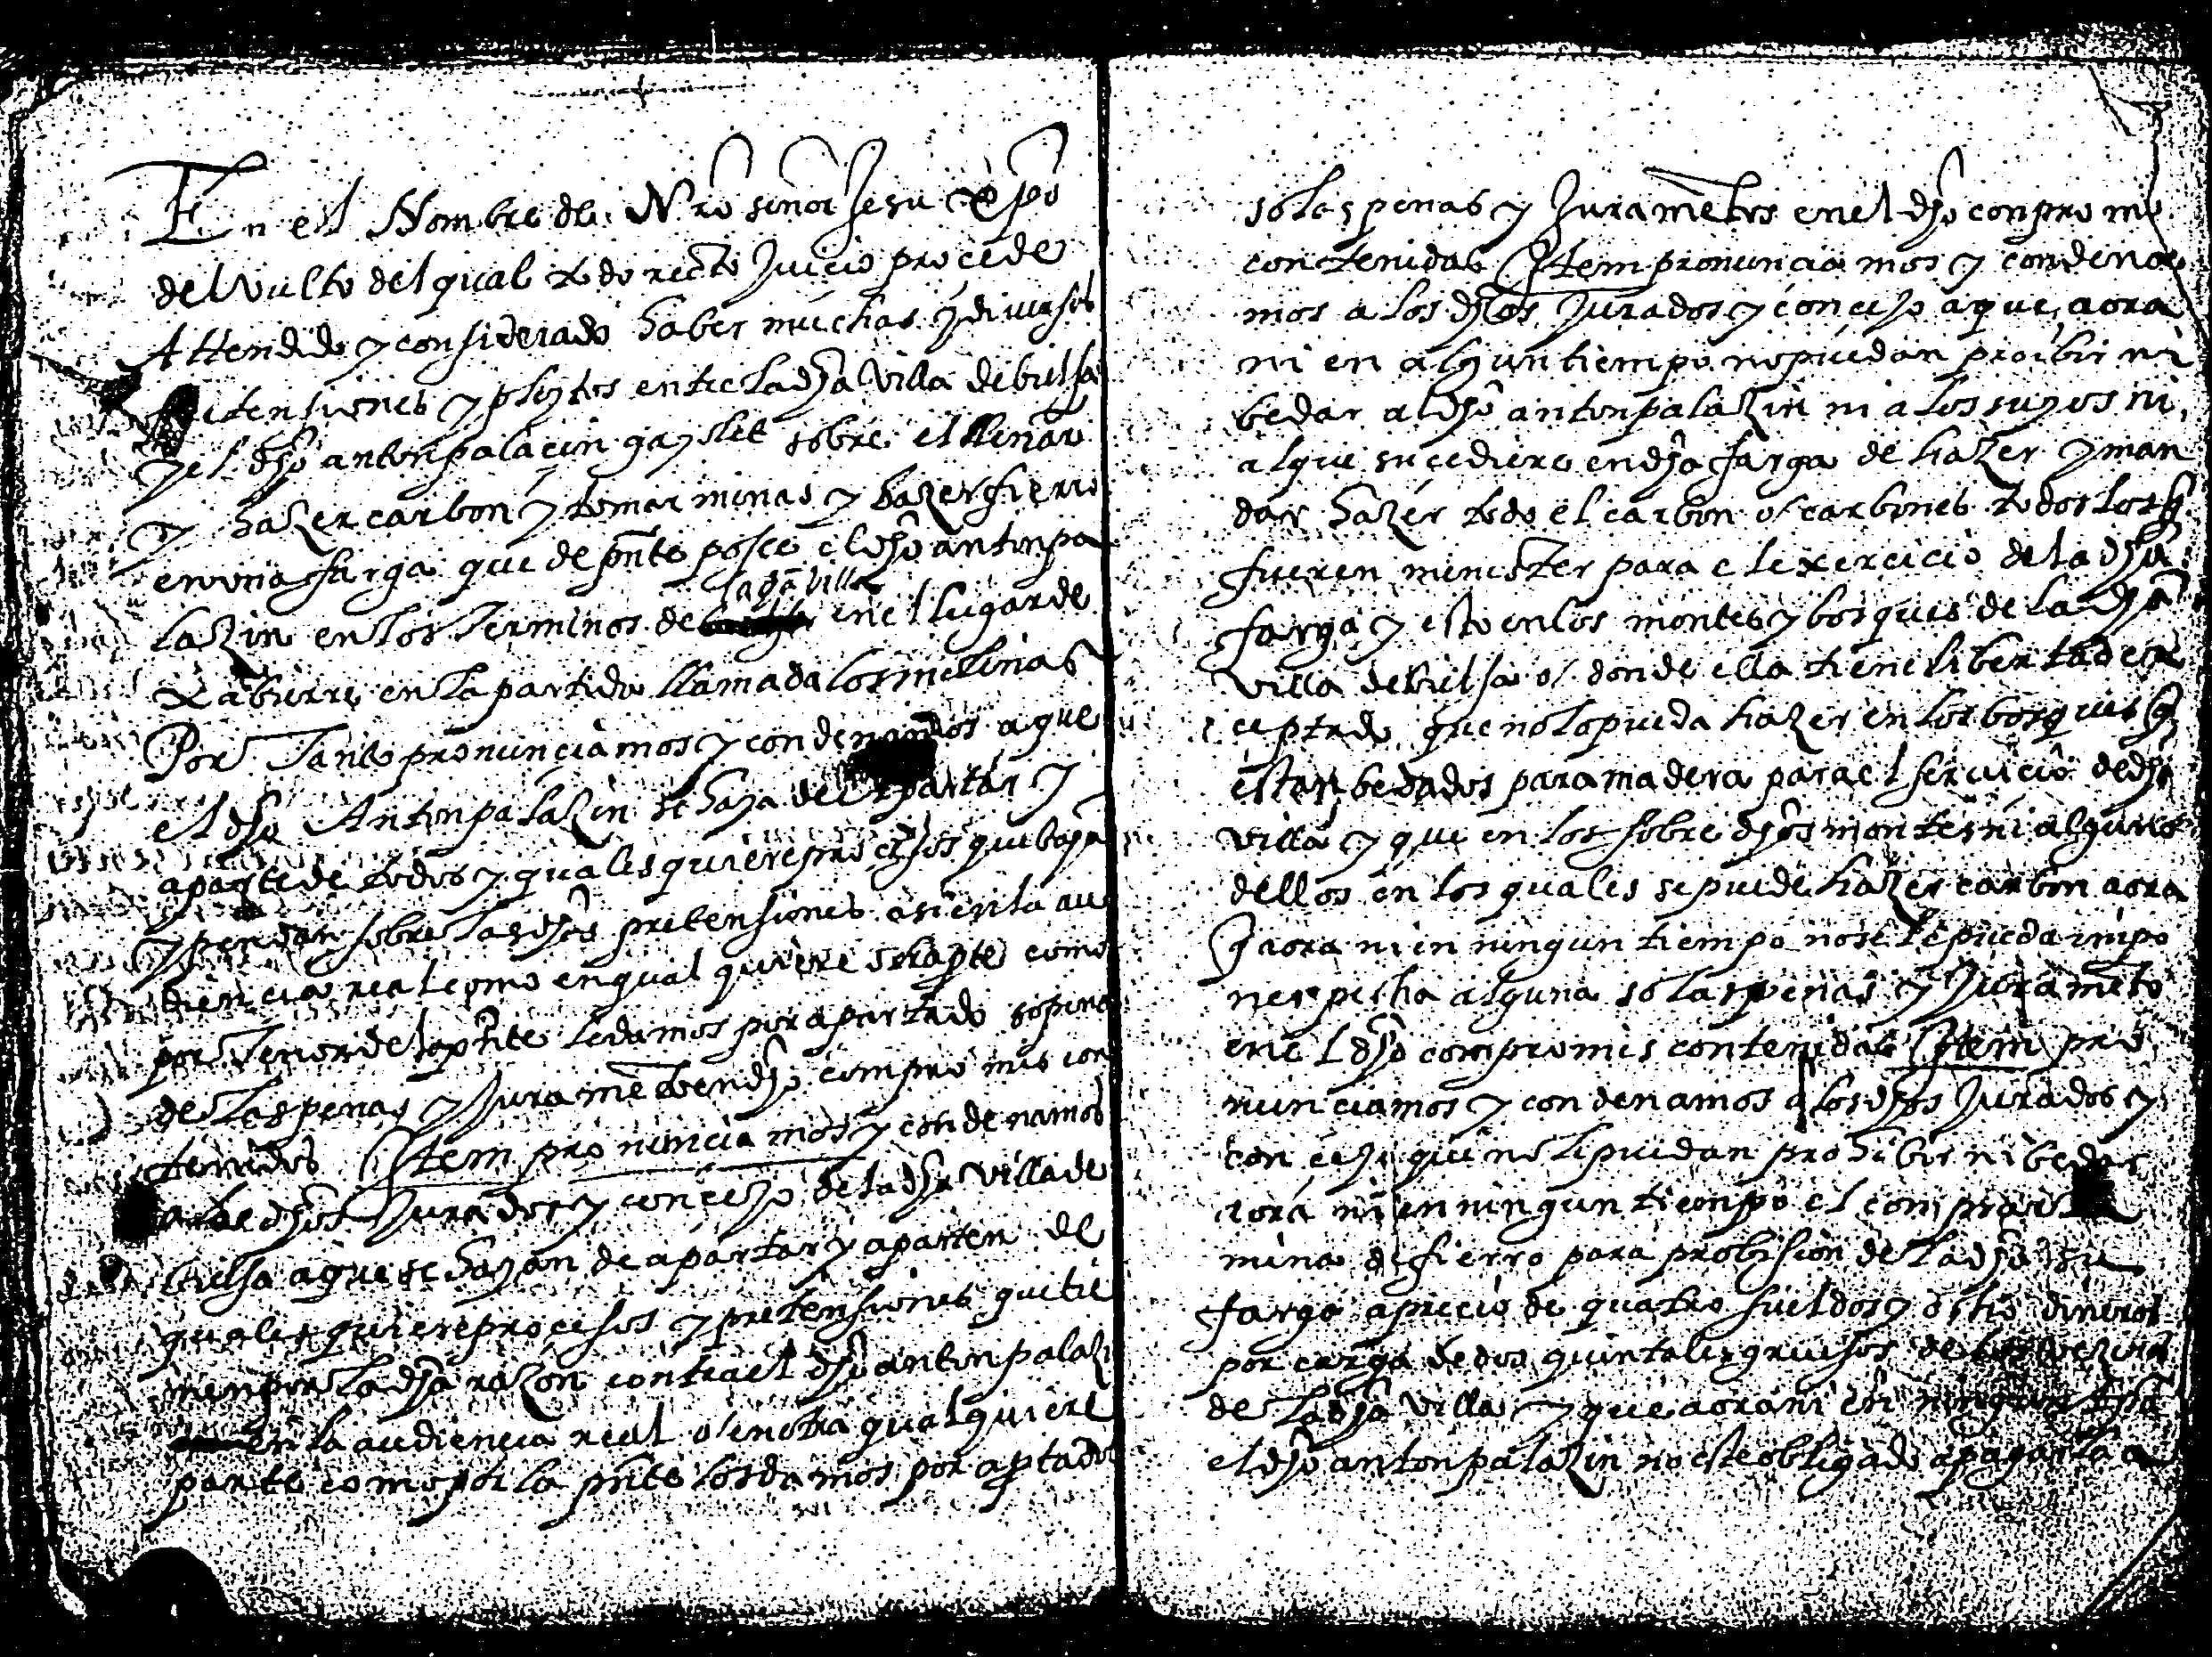 En el Nombre de Nro señor Jesu xpo
del Vulto del qual todo recto Juicio procede
Attendido y considerado haber muchas y diuersas
pretensiones y pleytos entre la dha Villa de bielsa
y el dho anton palacin gayslet sobre el llenar
y hazer carbon y tomar minas y hazer fierro
en una farga que de pnte posee el dho anton pa
lazin en los terminos de la dha villa en el lugar de
en la partida llamada los
Por Tanto pronunciamos y condenamos a que
el dho Anton palazin se haya de apartar y
aparte de todos y qualesquiere processos que haya
y pendan sobre las dhas pretensiones asi en la au
diencia real como en qual quiere parte como
por Tenor de la pnte le damos por apartado so pena
de las penas y Juramento en dho compromis con
tenidos Item pronunciamos y condenamos
a los dhos Jurados y concejo de la dha Villa de
bielsa a que se hayan de apartar y aparten de
qualesquiere procesos y pretensiones que tie
nen por la dha razon contra el dho anton palazi
en la audiencia real o en otra qualquiere
parte como por la pnte los damos por aptados
so las penas y Juramentos en el dho conpromis
contenidas Item pronunciamos y condena
mos a los dhos Jurados y concejo a que aora
ni en algun tiempo no puedan proibir ni
bedar al dho anton palazin ni a los suyos ni
al que sucediere en dha farga de hazer y man
dar hazer todo el carbon o carbones todos los q
fueren menester para el exercicio de la dha
farga y esto en los montes y bosques de la dha
villa de bielsa o donde ella tiene libertad ex
ceptado que no lo pueda hazer en los bosques q
estan bedados para madera para el seruicio de dha
villa y que en los sobre dhos montes ni alguno
dellos en los quales se puede hazer carbon aora
q aora ni en ningun tiempo no se le pueda impo
ner pecha alguna so las penas y Juramento
en el dho compromis contenidas Item pro
nunciamos y condenamos a los dhos Jurados y
concejo que no le puedan prohibir ni bedar
aora ni en ningun tiempo el comprar
mina de fierro para probision de la dha su
farga a precio de quatro sueldos y ocho dineros
por carga de dos quintales gruesos de los vezinos
de la dha villa y que aora ni en ningun tpo
el dho anton palazin no este obligado a pagar la a